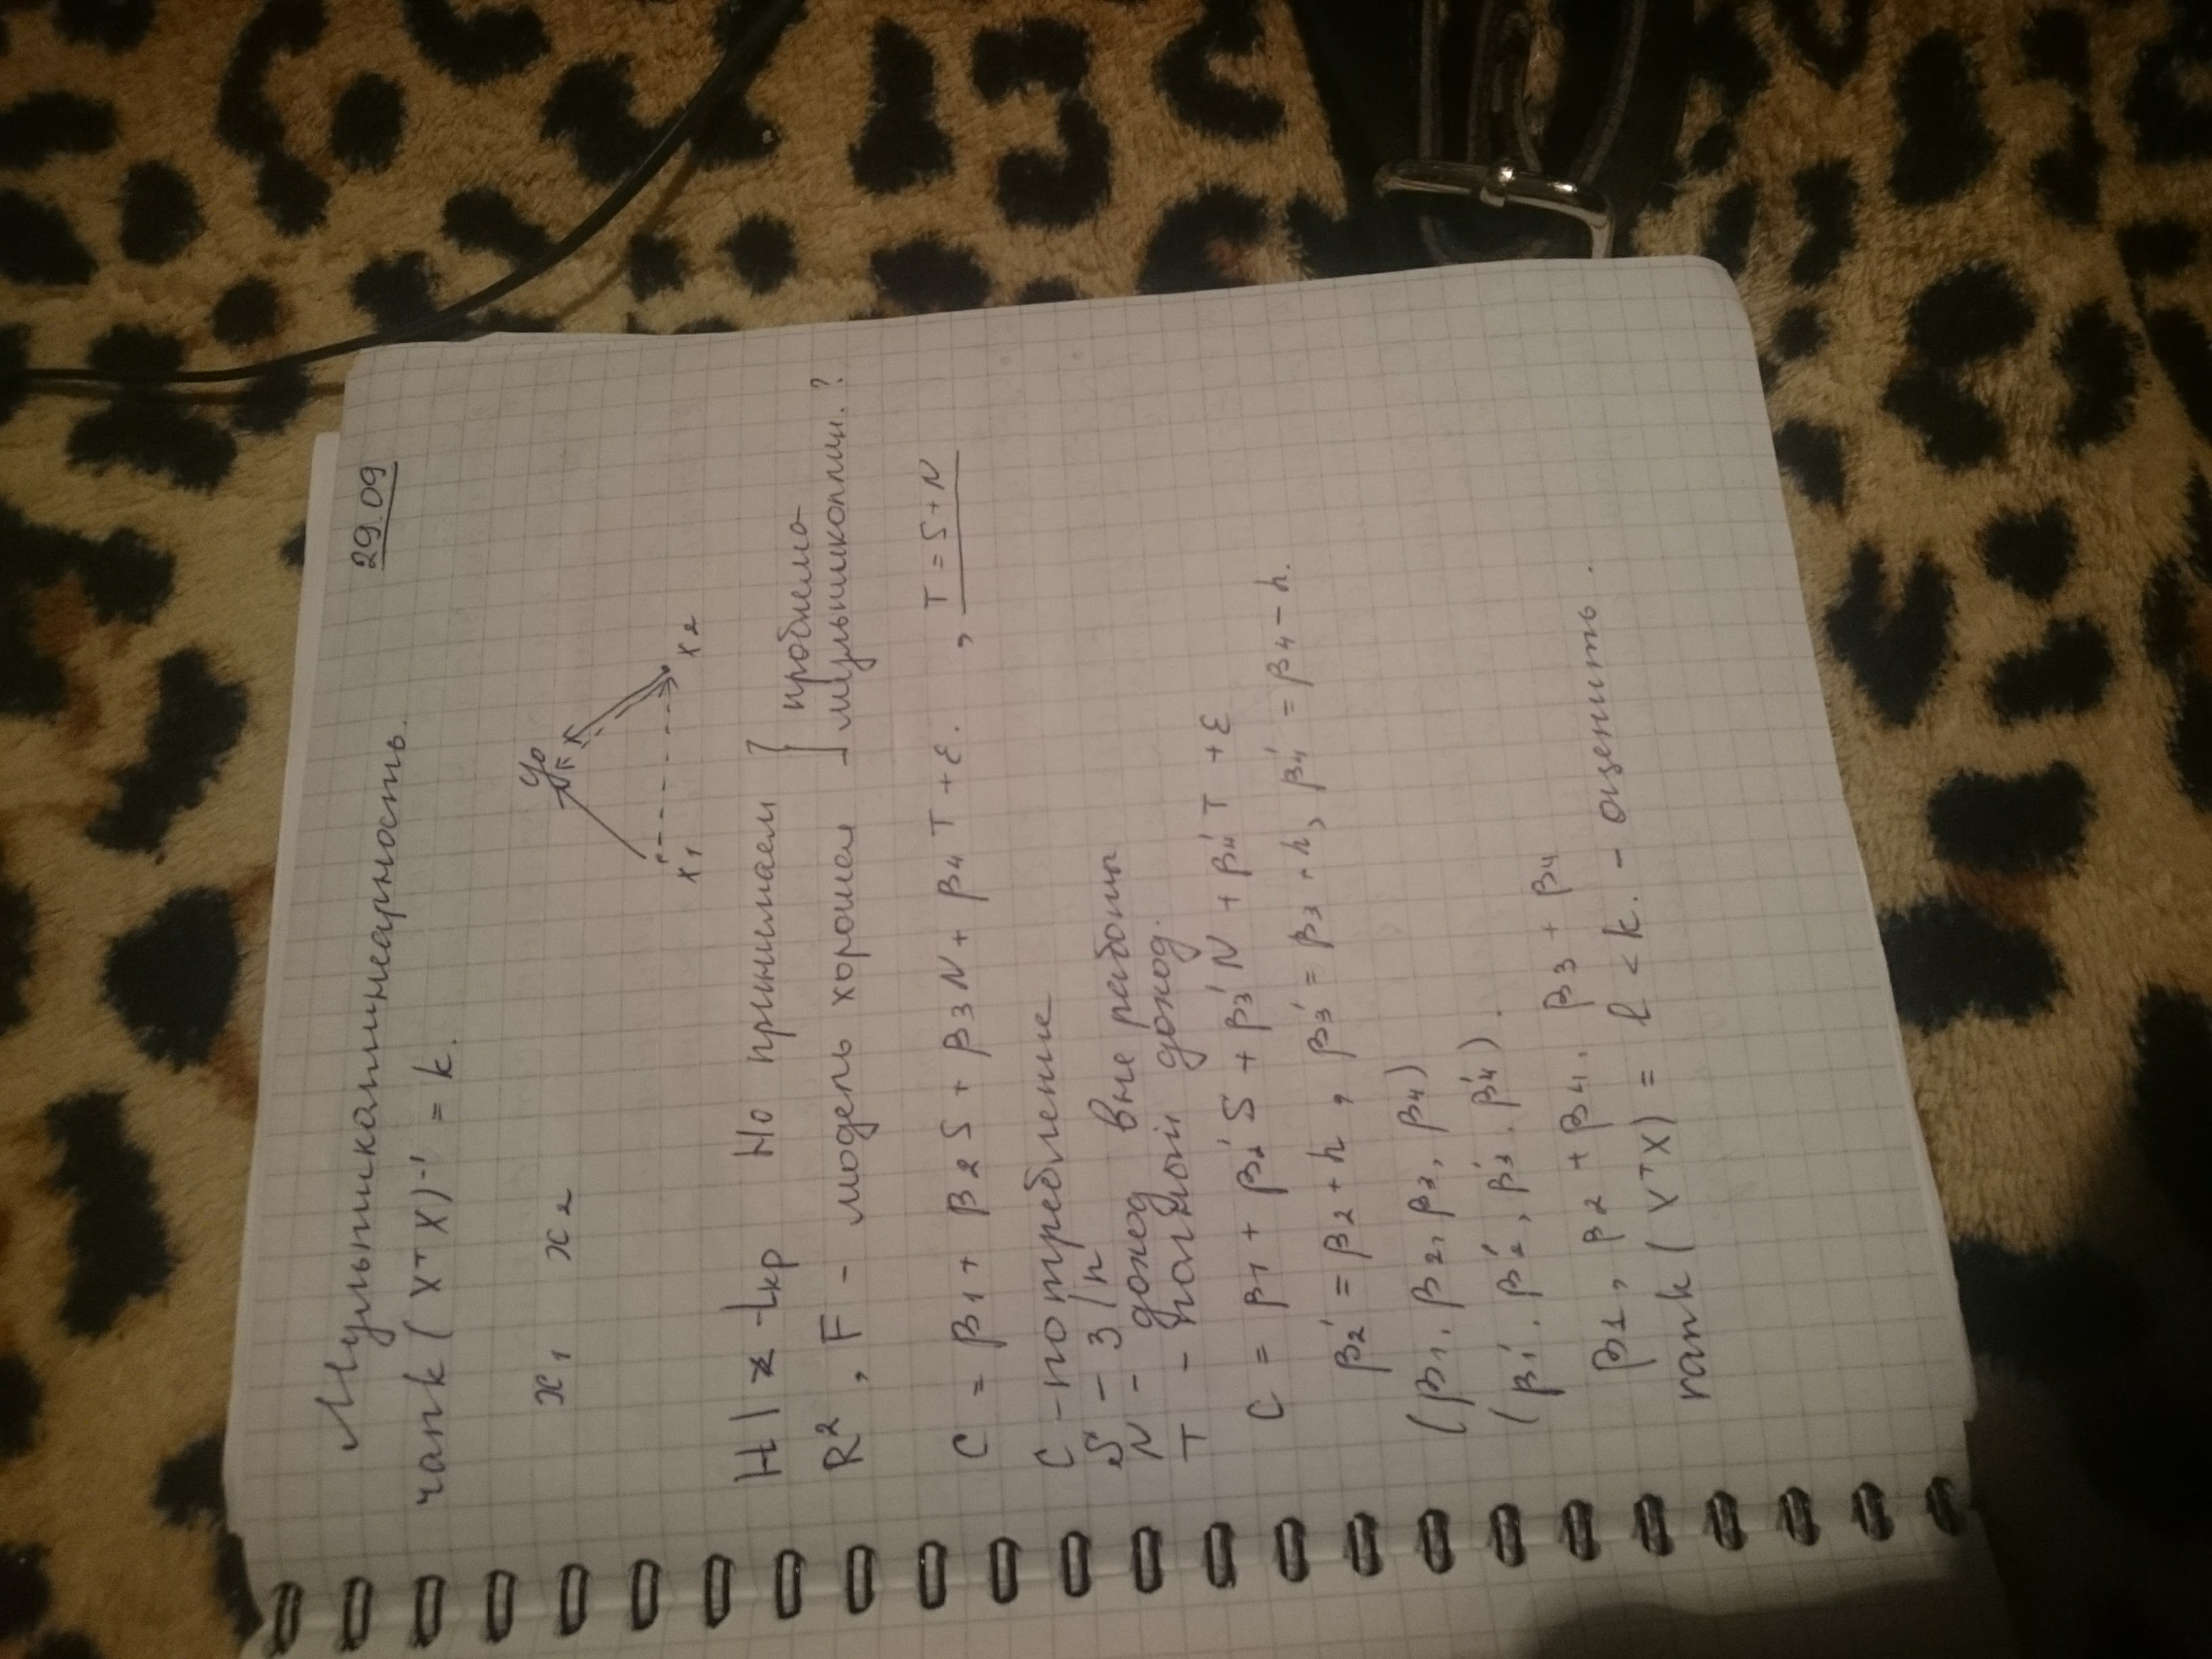 29.09
Мультиколлинеарность.
rank (XᵀX)⁻¹ = k.
x₁ x₂
y₀
x₁ x₂
H₀ принимаем } проблема
R², F - модель хорошая } мультиколлин.?
C = β₁ + β₂S + β₃N + β₄T + ε. , T = S + N
C - потребление
S - з/п
N - доход вне работы
T - полный доход.
C = β₁ + β₂'S + β₃'N + β₄'T + ε
β₂' = β₂ + h, β₃' = β₃ + h, β₄' = β₄ - h.
(β₁, β₂, β₃, β₄)
(β₁', β₂', β₃', β₄').
β₁, β₂ + β₄, β₃ + β₄
rank (XᵀX) = l < k. - оценить.